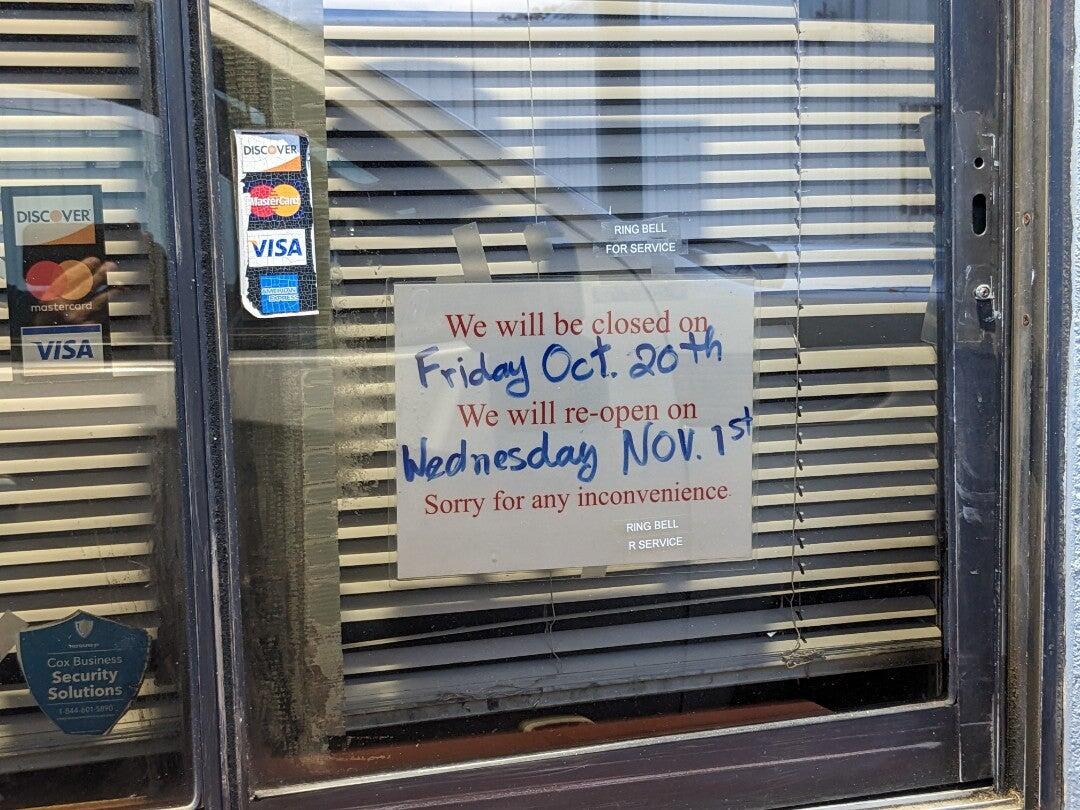 DISCOVER
mastercard
VISA
DISCOVER
MasterCard
VISA
AMERICAN
EXPRESS
RING BELL
FOR SERVICE
We will be closed on
Friday Oct. 20th
We will re-open on
Wednesday NOV. 1st
Sorry for any inconvenience
RING BELL
R SERVICE
Cox Business
Security
Solutions
1-844-601-5890